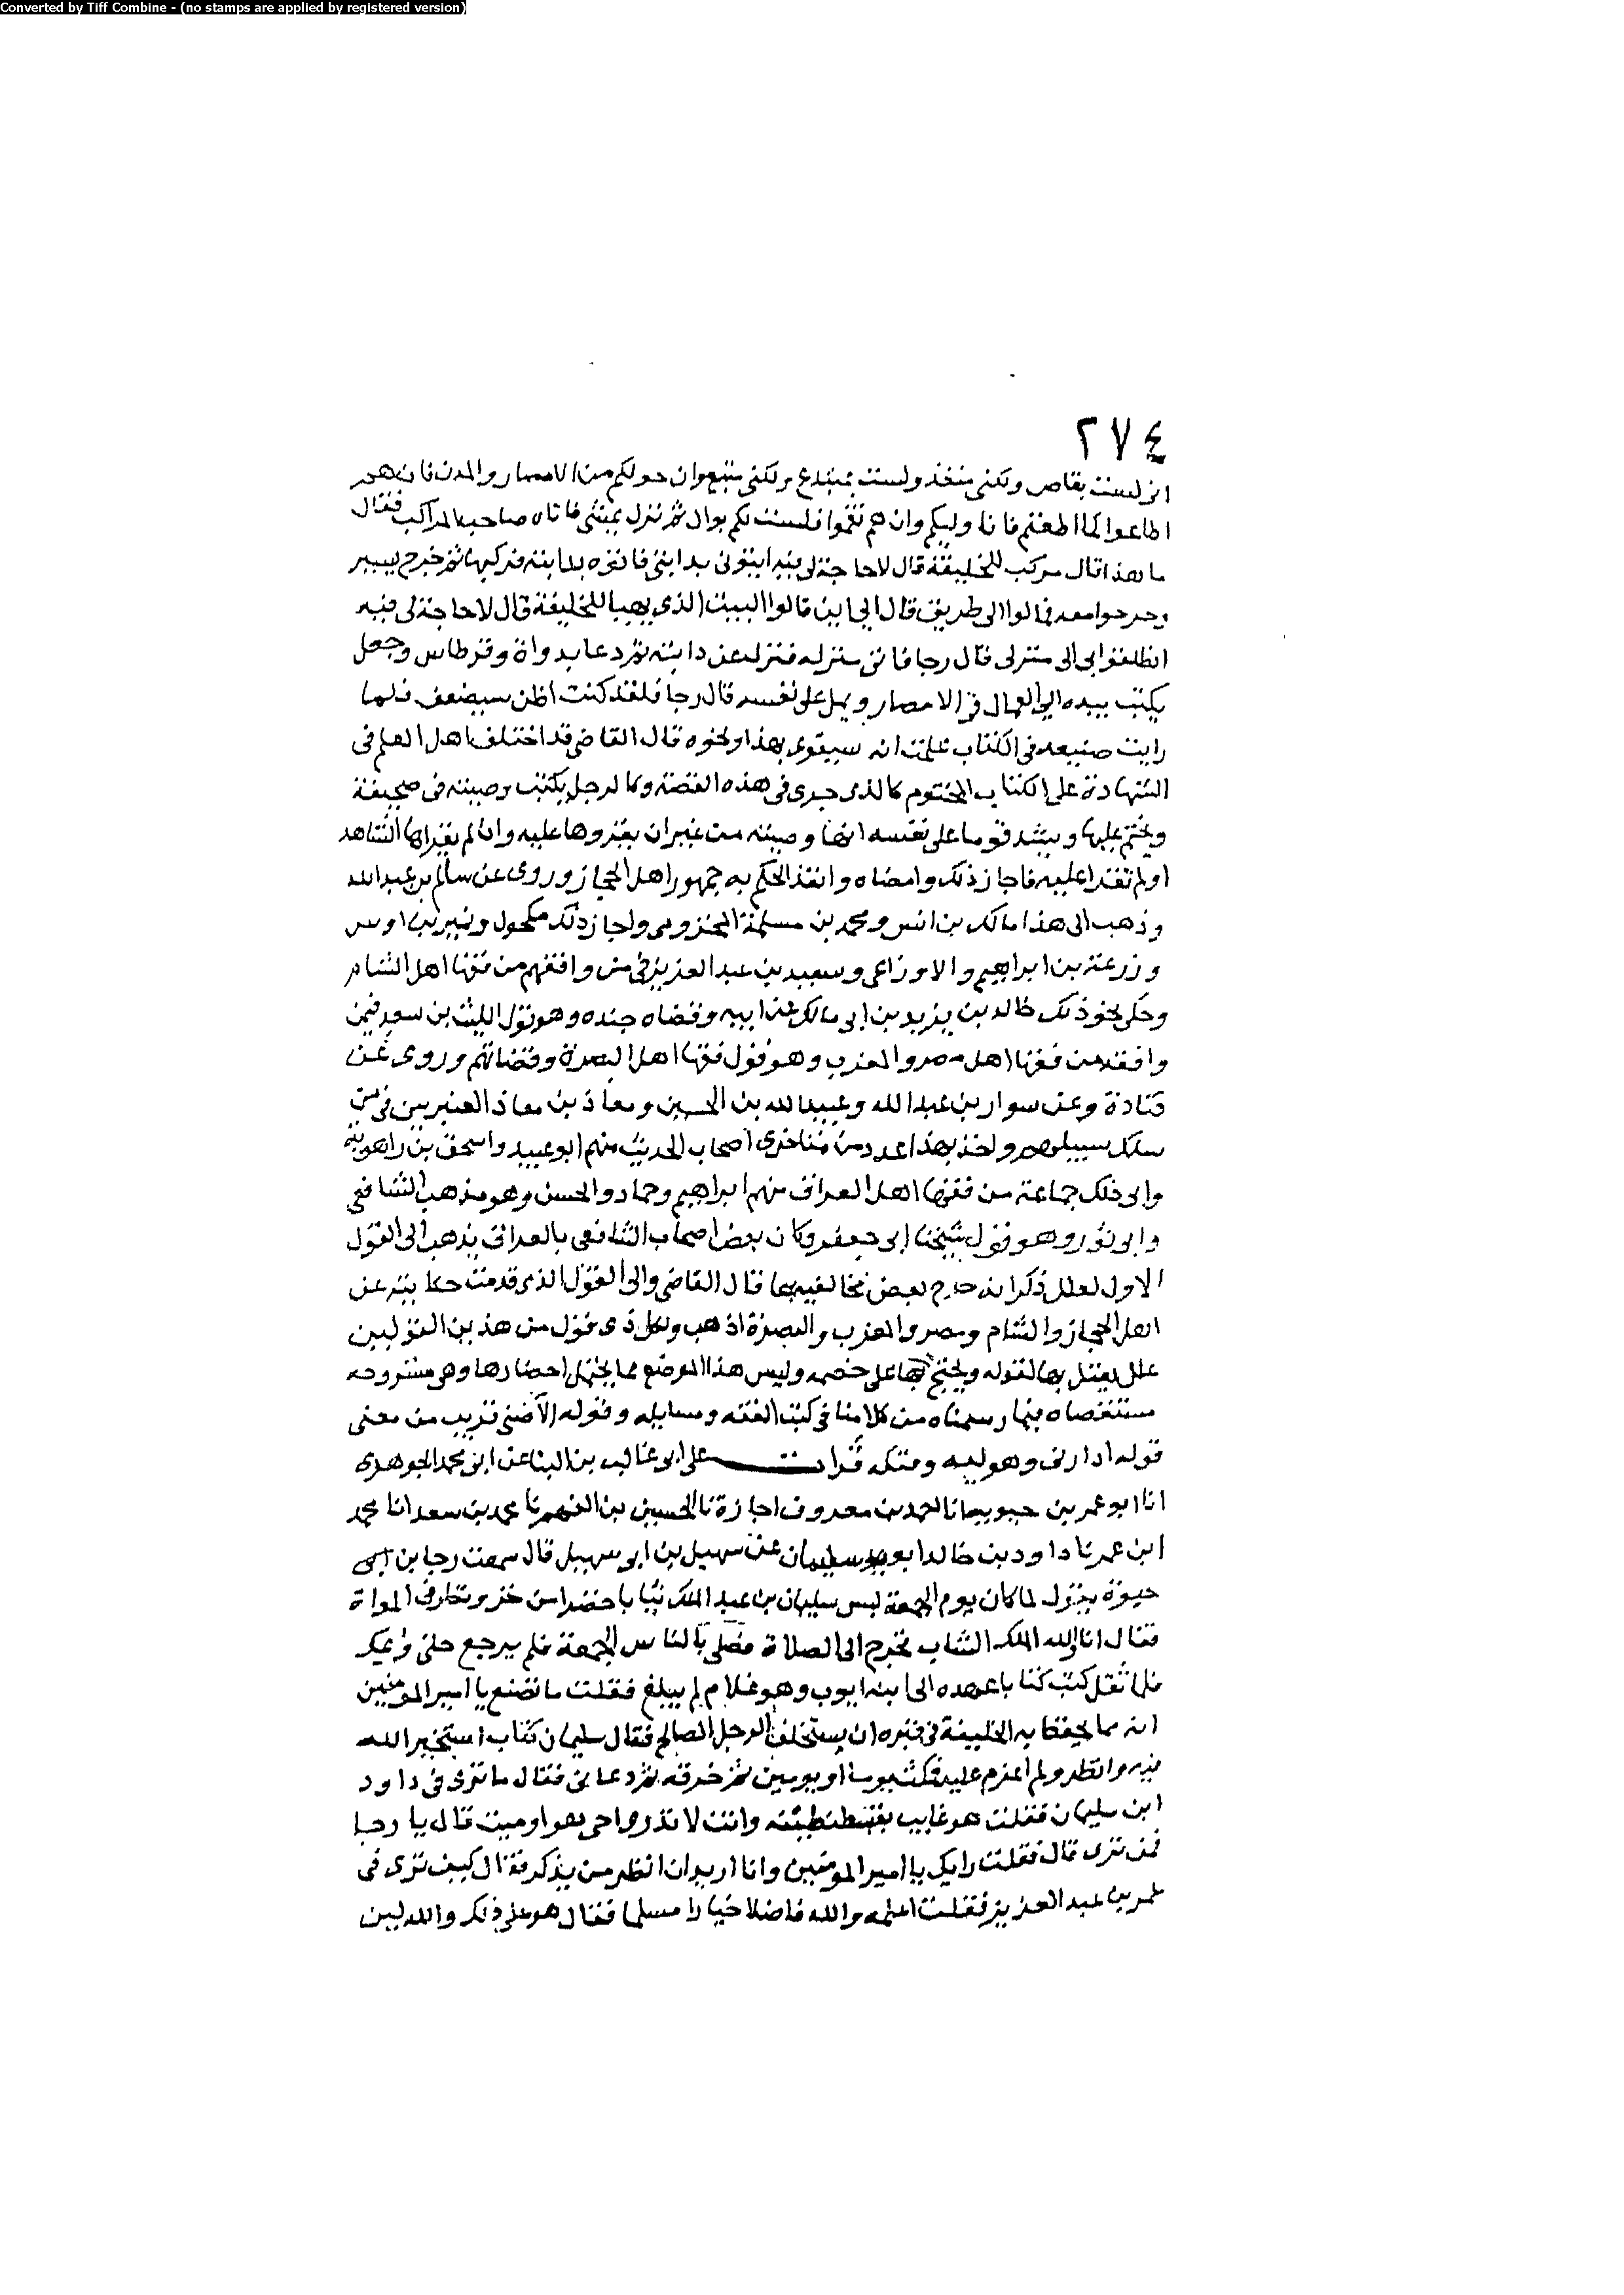 Converted by Tiff Combine - (no stamps are applied by registered version)
٢٧٤
انى لست بقاص ولكنى منفذ ولست بمبتدع ولكنى متبع وان حولكم من الامصار والمدن فان هم
اطاعوا كما اطعتم فانا وليكم وان هم نقموا فلست لكم بوال ثم نزل يمشى فاتاه صاحب المراكب فقال
ما هذا قال مركب للخليفة قال لا حاجة لى فيه ايتونى بدابتى فاتوه بدابته فركبها ثم خرج يسير
وخرجوا معه فمالوا الى طريق قال الى اين قالوا البيت الذى يهيا للخليفة قال لا حاجة لى فيه
انطلقوا بى الى منزلى قال رجا فاتى منزله فنزل عن دابته ثم دعا بدواة وقرطاس وجعل
يكتب بيده الى العمال فى الامصار ويمل على نفسه قال رجا فلقد كنت اظن سيضعف فلما
رايت صنيعه فى الكتاب علمت انه سيقوى بهذا ونحوه قال القاضى قد اختلف اهل العلم فى
الشهادة على الكتاب المختوم كالذى جرى فى هذه القصة وكالرجل يكتب وصيته فى صحيفة
ويختم عليها ويشهد قوما على نفسه انها وصيته من غير ان يقروها عليه وان لم يقراها الشاهد
او لم تقرا عليه فاجاز ذلك وامضاه وانفذ الحكم به جمهور اهل الحجاز وروى عن سالم بن عبد الله
وذهب الى هذا مالك بن انس ومحمد بن مسلمة المخزومى واجاز ذلك مكحول ونمير بن اوس
وزرعة بن ابراهيم والاوزاعى وسعيد بن عبد العزيز فى من وافقهم من فقها اهل الشام
وحكى نحو ذلك خالد بن يزيد بن ابى مالك عن ابيه وقضاه جنده وهو قول الليث بن سعد فيمن
وافقه من فقها اهل مصر والمغرب وهو قول فقها اهل البصرة وقضاتهم وروى عن
قتادة وعن سوار بن عبد الله وعبيد الله بن الحسين ومعاذ بن معاذ العنبريين فى من
سلك سبيلهم واخذ بهذا عدد من متاخرى اصحاب الحديث منهم ابو عبيد واسحق بن راهويه
وابى ذلك جماعة من فقها اهل العراق منهم ابراهيم وحماد والحسن وهو مذهب الشافعى
وابى ثور وهو قول شيخنا ابى جعفر وكان بعض اصحاب الشافعى بالعراق يذهب الى القول
الاول لعلل ذكر انه حاج بعض مخالفيه بها قال القاضى والى القول الذى قدمت حكايته عن
اهل الحجاز والشام ومصر والمغرب والبصرة اذهب ولكل ذى قول من هذين القولين
علل يعتل بها لقوله ويحتج بها على خصمه وليس هذا الموضع مما يحتمل احضارها وهى مشروحة
مستقصاه فيما رسمناه من كلامنا فى كتب الفقه ومسايله وقوله الاضنى قريب من معنى
قوله ادارنى وهو ليه ومتكه قرات على ابو غالب بن البنا عن ابى محمد الجوهرى
انا ابو عمر بن حيويه انا احمد بن معروف اجازة نا الحسين بن الفهم نا محمد بن سعد انا محمد
ابن عمر نا داود بن خالد ابو سليمان عن سهيل بن ابى سهيل قال سمعت رجا بن ابى
حيوة يقول لما كان يوم الجمعة لبس سليمان بن عبد الملك ثيابا خضرا من خز ونظر فى المراة
فقال انا والله الملك الشاب فخرج الى الصلاة فصلى بالناس الجمعة فلم يرجع حتى وعك
فلما ثقل كتب كتابا عهده الى ابنه ايوب وهو غلام لم يبلغ فقلت ما تصنع يا امير المومنين
انه مما يحفظ به الخليفة فى قبره ان يستخلف الرجل الصالح فقال سليمان كتاب استخير الله
فيه وانظر ولم اعزم عليه فمكث يوما او يومين ثم خرقه ثم دعانى فقال ما ترى فى داود
ابن سليمان فقلت هو غايب بقسطنطينية وانت لا تدرى احى هو او ميت قال يا رجا
فمن ترى قال فقلت رايك يا امير المومنين وانا اريد ان انظر من يذكر فقال كيف ترى فى
عمر بن عبد العزيز فقلت اعلمه والله فاضلا خيارا مسلما فقال هو على ذلك والله لين